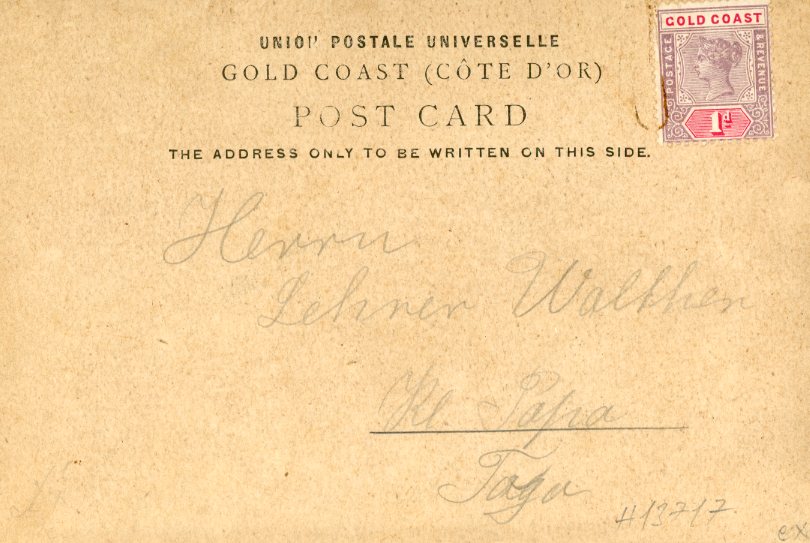 UNION POSTALE UNIVERSELLE
GOLD COAST (CÔTE D'OR)
POST CARD
THE ADDRESS ONLY TO BE WRITTEN ON THIS SIDE.
GOLD COAST
POSTAGE
& REVENUE
1d
Herrn
Lehrer Walther
Kl. Papa
Togo
#13717
ex